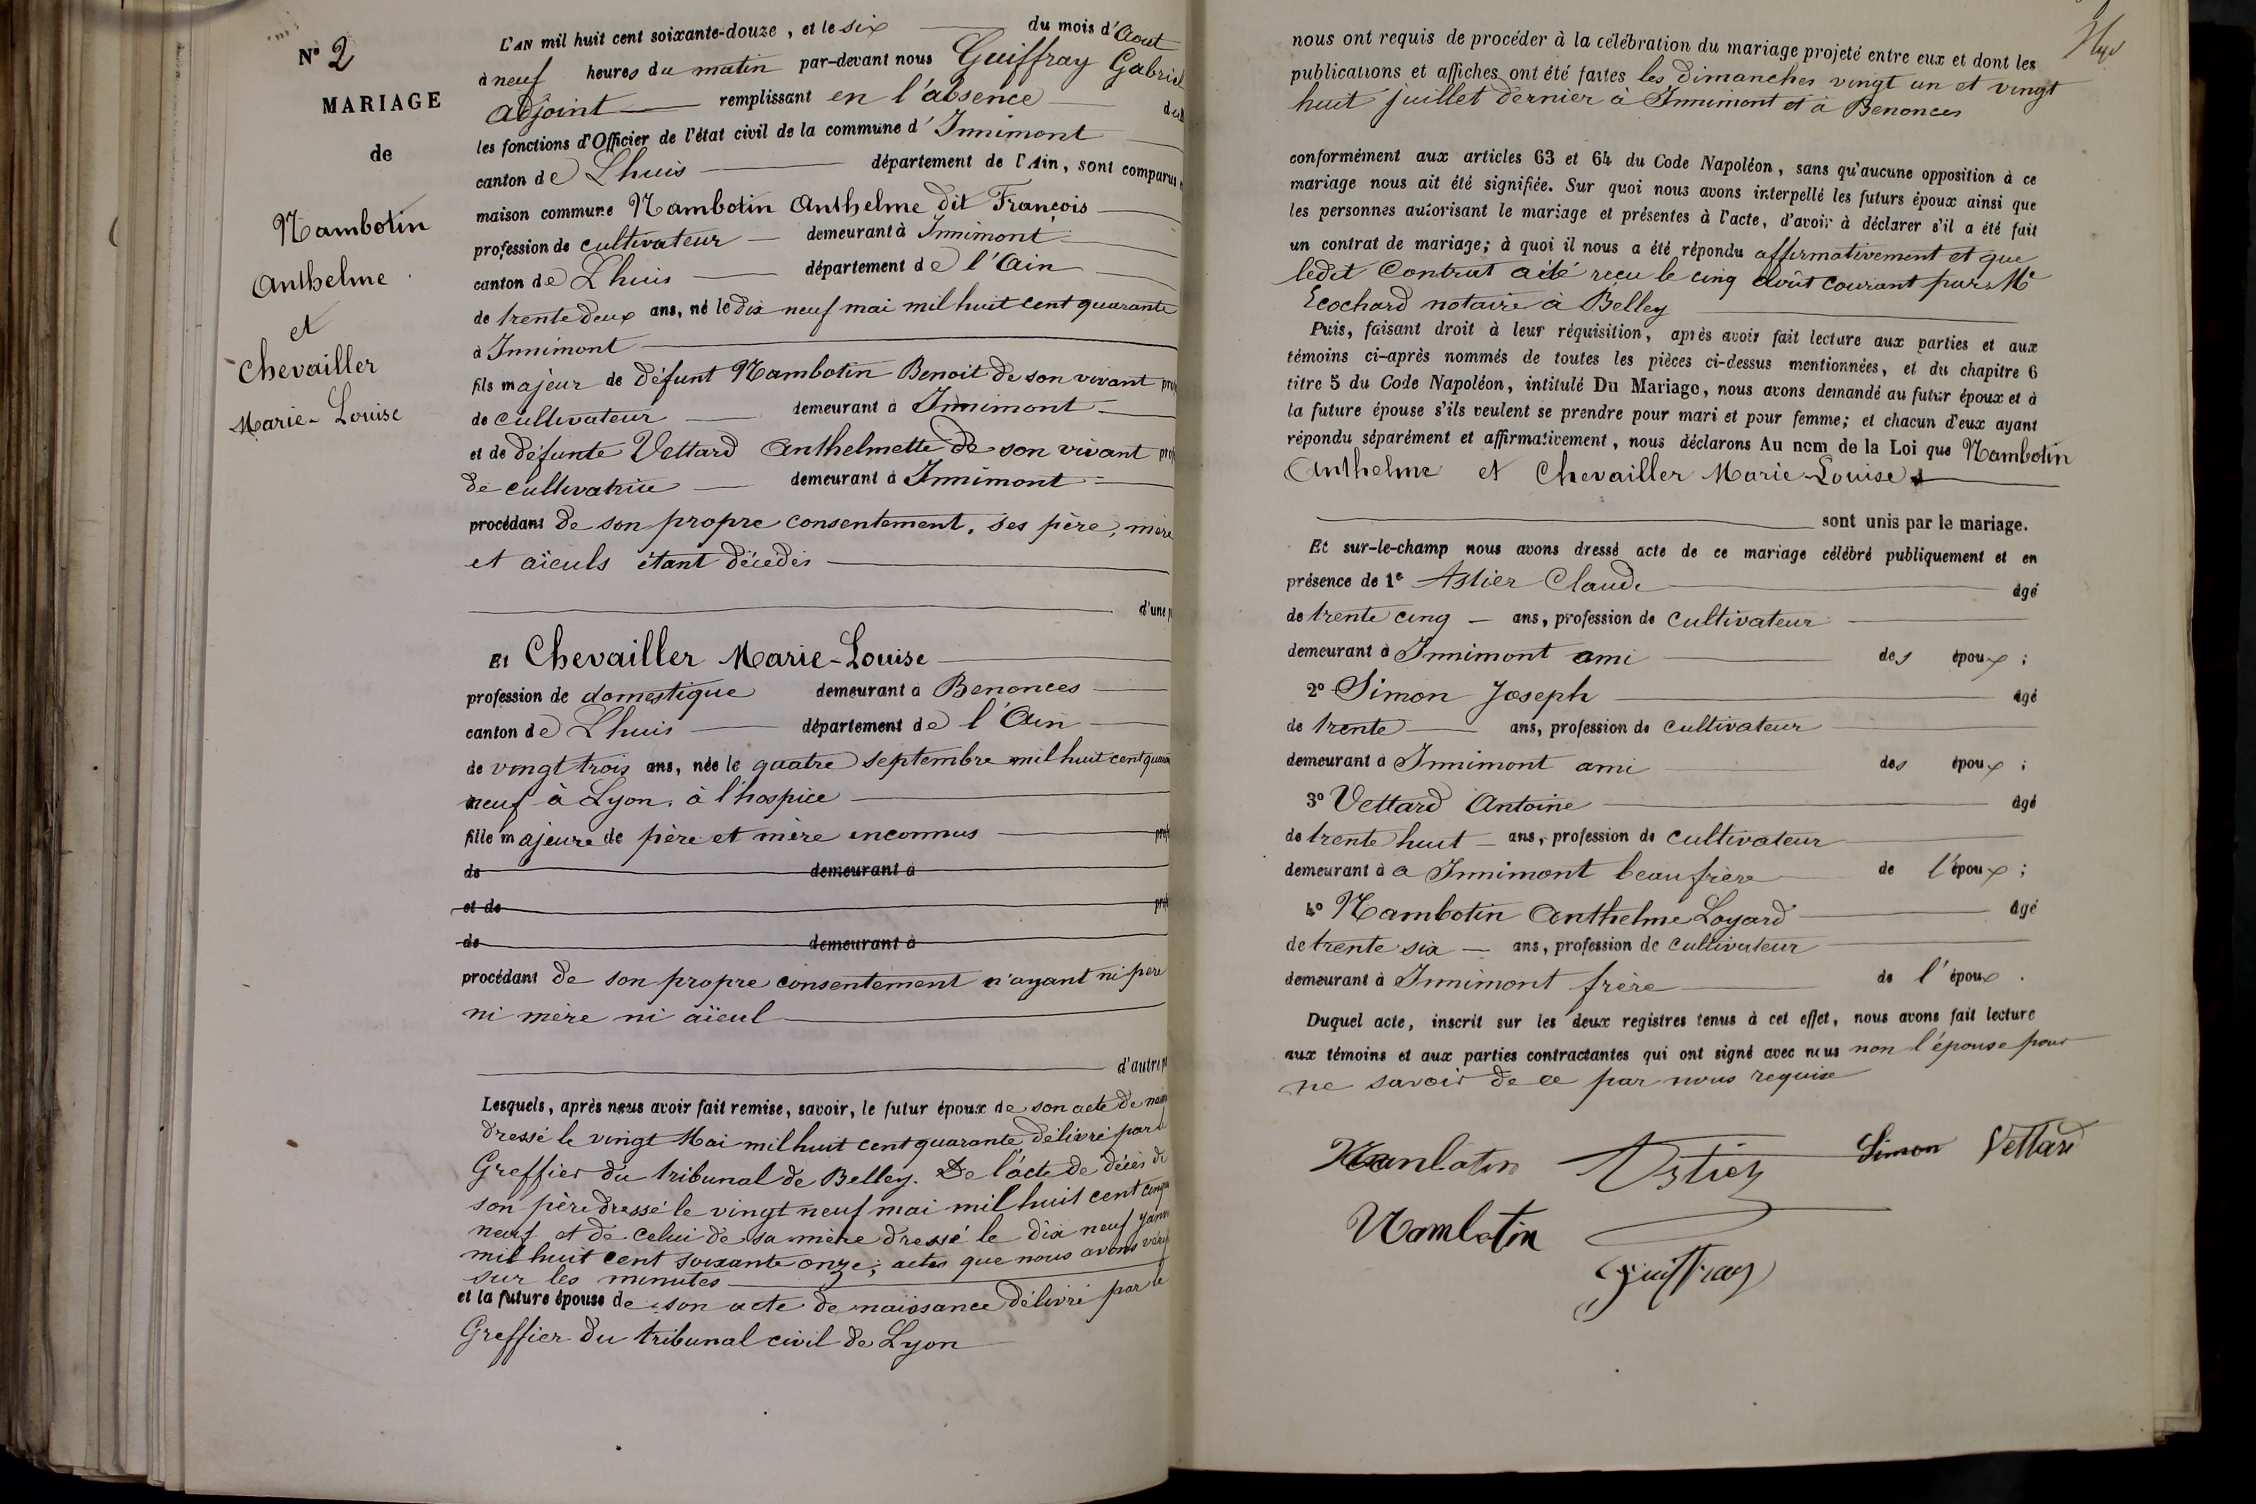 N° 2
MARIAGE
de
Nambotin
Anthelme
et
Chevailler
Marie-Louise
L'AN mil huit cent soixante-douze, et le six du mois d'Aout
à neuf heures du matin par-devant nous Guiffray Gabriel
adjoint remplissant en l'absence
les fonctions d'Officier de l'état civil de la commune d'Innimont
canton de Lhuis département de l'Ain, sont comparus
maison commune Nambotin Anthelme dit François
profession de cultivateur demeurant à Innimont
canton de Lhuis département de l'Ain
de trente deux ans, né le dix neuf mai mil huit cent quarante
à Innimont
fils majeur de défunt Nambotin Benoit de son vivant
de cultivateur demeurant à Innimont
et de défunte Vettard Anthelmette de son vivant
de cultivatrice demeurant à Innimont
procédant de son propre consentement, ses père, mère
et aïeuls étant décédés
d'une
Et Chevailler Marie-Louise
profession de domestique demeurant à Benonces
canton de Lhuis département de l'Ain
de vingt trois ans, née le quatre septembre mil huit cent
neuf à Lyon, à l'hospice
fille majeure de père et mère inconnus
de demeurant à
et de
de demeurant à
procédant de son propre consentement n'ayant ni père
ni mère ni aïeul
d'autre
Lesquels, après nous avoir fait remise, savoir, le futur époux de son acte de
dressé le vingt Mai mil huit cent quarante délivré par
Greffier du tribunal de Belley. De l'acte de décès de
son père dressé le vingt neuf mai mil huit cent
neuf et de celui de sa mère dressé le dix neuf
mil huit cent soixante onze; actes que nous avons
sur les minutes
et la future épouse de son acte de naissance délivré par le
Greffier du tribunal civil de Lyon
nous ont requis de procéder à la célébration du mariage projeté entre eux et dont les
publications et affiches ont été faites les dimanches vingt un et vingt
huit juillet dernier à Innimont et à Benonces
conformément aux articles 63 et 64 du Code Napoléon, sans qu'aucune opposition à ce
mariage nous ait été signifiée. Sur quoi nous avons interpellé les futurs époux ainsi que
les personnes autorisant le mariage et présentes à l'acte, d'avoir à déclarer s'il a été fait
un contrat de mariage; à quoi il nous a été répondu affirmativement et que
ledit Contrat a été reçu le cinq Août courant par Me
Ecochard notaire à Belley
Puis, faisant droit à leur réquisition, après avoir fait lecture aux parties et aux
témoins ci-après nommés de toutes les pièces ci-dessus mentionnées, et du chapitre 6
titre 5 du Code Napoléon, intitulé Du Mariage, nous avons demandé au futur époux et à
la future épouse s'ils veulent se prendre pour mari et pour femme; et chacun d'eux ayant
répondu séparément et affirmativement, nous déclarons Au nom de la Loi que Nambotin
Anthelme et Chevailler Marie-Louise
sont unis par le mariage.
Et sur-le-champ nous avons dressé acte de ce mariage célébré publiquement et en
présence de 1° Astier Claude âgé
de trente cinq ans, profession de cultivateur
demeurant à Innimont ami des époux;
2° Simon Joseph âgé
de trente ans, profession de cultivateur
demeurant à Innimont ami des époux;
3° Vettard Antoine âgé
de trente huit ans, profession de cultivateur
demeurant à a Innimont beau frère de l'époux;
4° Nambotin Anthelme Loyard âgé
de trente six ans, profession de cultivateur
demeurant à Innimont frère de l'époux.
Duquel acte, inscrit sur les deux registres tenus à cet effet, nous avons fait lecture
aux témoins et aux parties contractantes qui ont signé avec nous non l'épouse pour
ne savoir de ce par nous requise
Nambotin Astier Simon Vettard
Nambotin
Guiffray